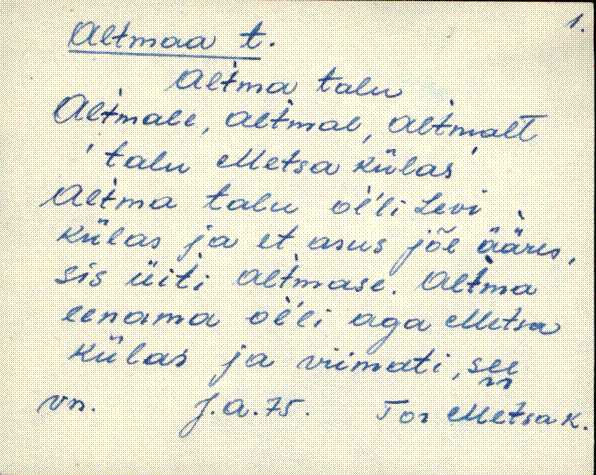 1.
Altmaa t.
Altma talu
Altmale, altmal, altmalt
talu Metsa külas
Altma talu ol'li Levi
külas ja et asus jõe ääres,
sis üiti altmase. Altma
eenama ol'li aga Metsa
külas ja viimati, see
vn. J.A. 75. Tor Metsa k.